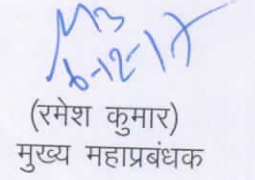 6-12-17
(रमेश कुमार)
मुख्य महाप्रबंधक